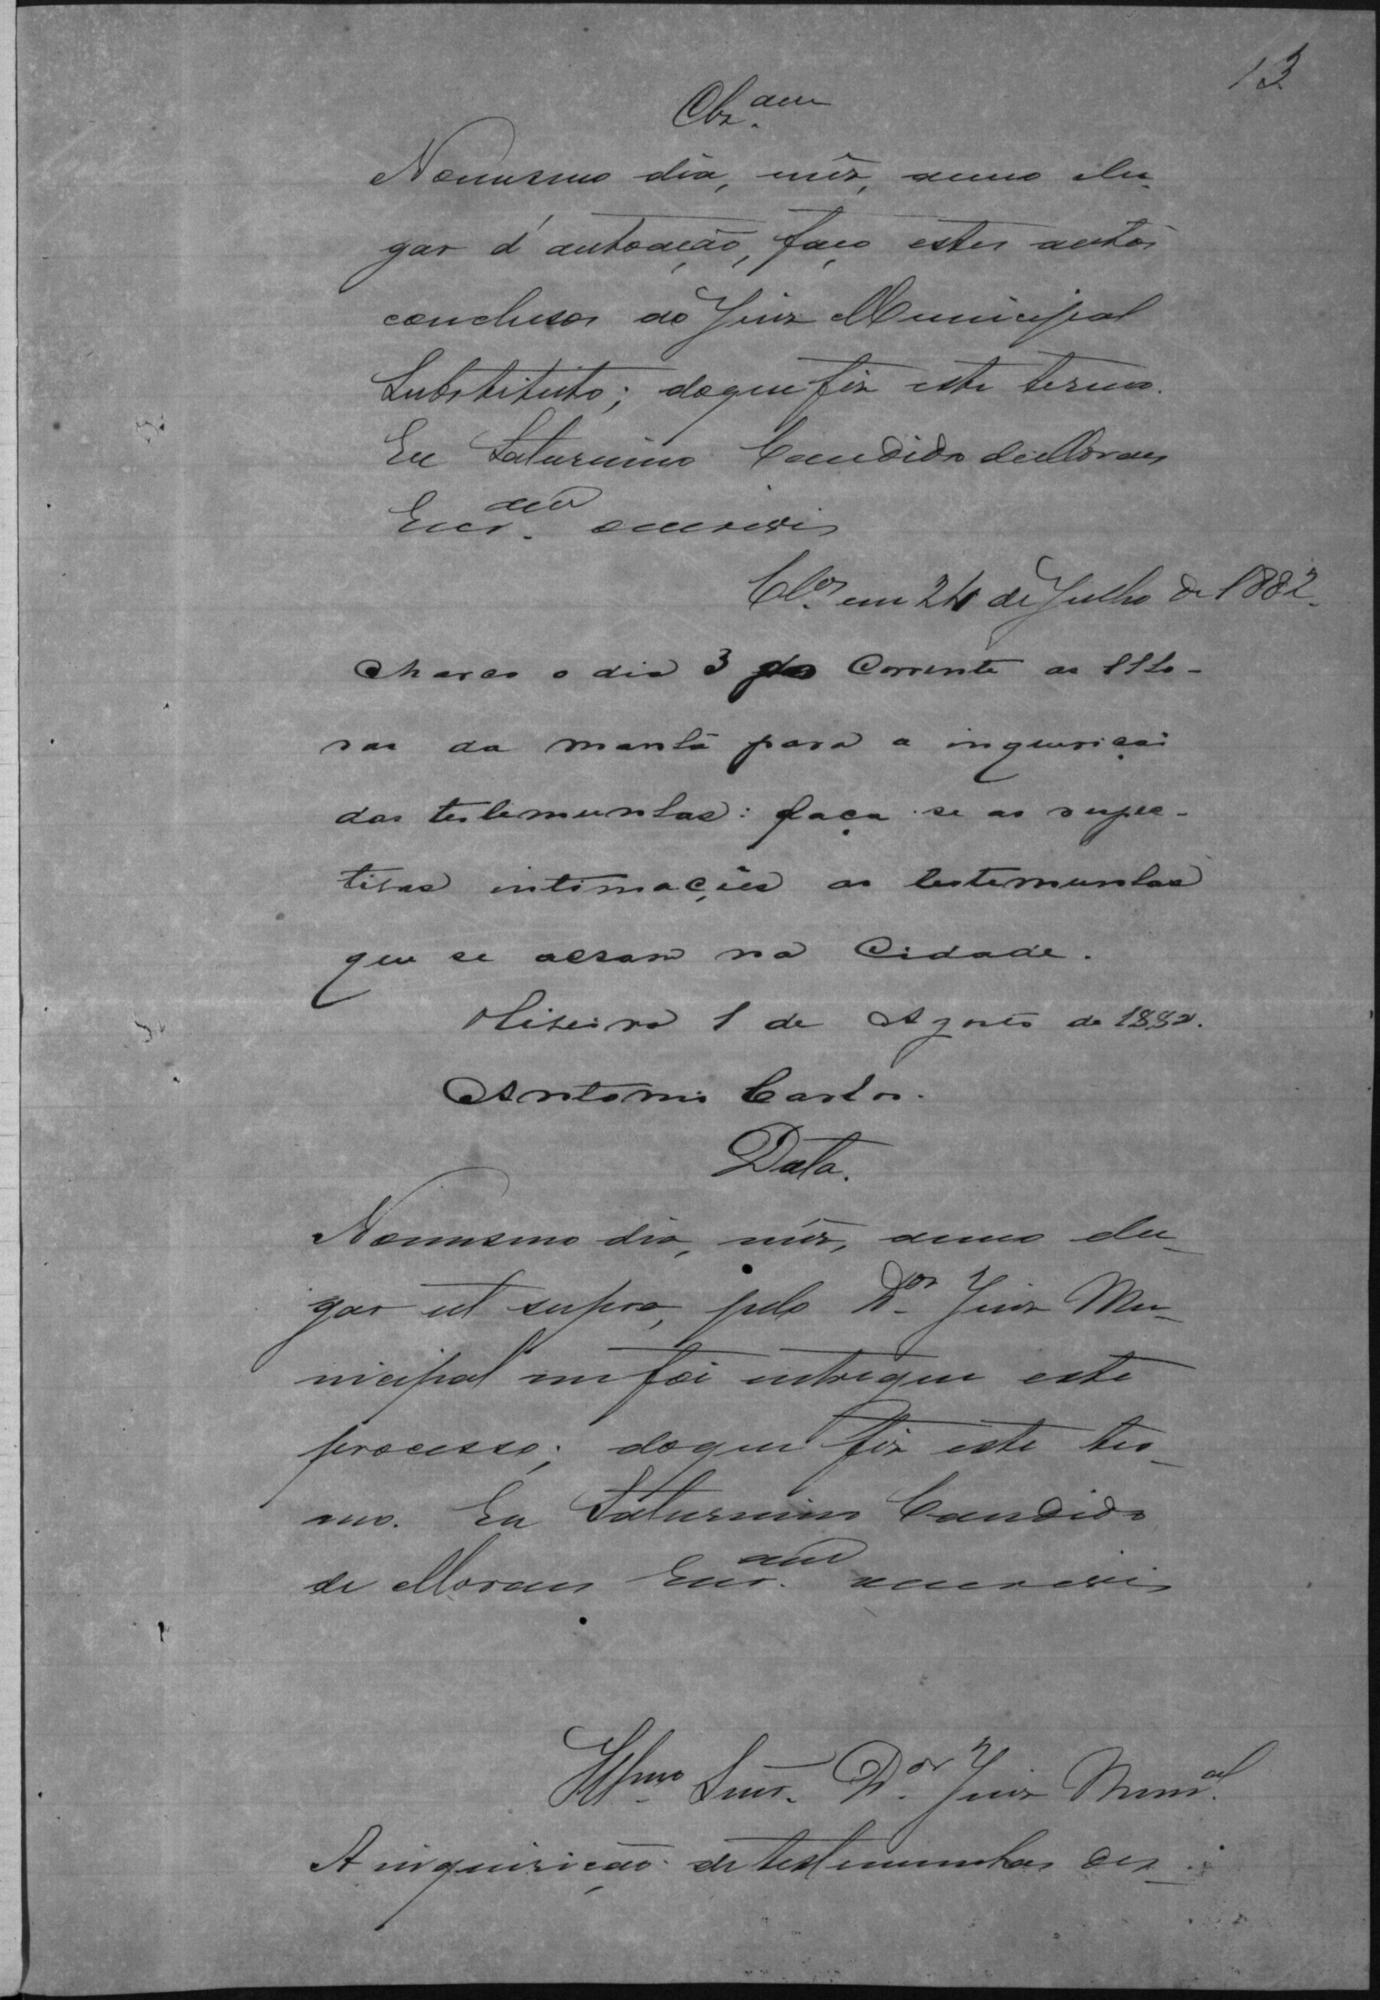 13
Clzam
No mesmo dia, mêz, anno e lu-
gar d'autoação, faço estes autos
conclusos ao Juiz Municipal
Substituto; do que fiz este termo.
Eu Saturnino Candido de Moraes
Escr.am escrevi
Clos em 24 de Julho de 1882.
Marco o dia 3 do Corrente as 11 ho-
ras da manhã para a inquirição
das testemunhas: faça-se as respec-
tivas intimações as testemunhas
que se acham na Cidade.
1 de Agosto de 1882.
Antonio Carlos.
Data.
No mesmo dia, mêz, anno e lu-
gar ut supra, pelo D.or Juiz Mu-
nicipal me foi entregue este
processo; do que fiz este ter-
mo. Eu Saturnino Candido
de Moraes Escr.am escrevi
Illmo Snr. D.or Juiz Mun.al
A inquirição de testemunhas